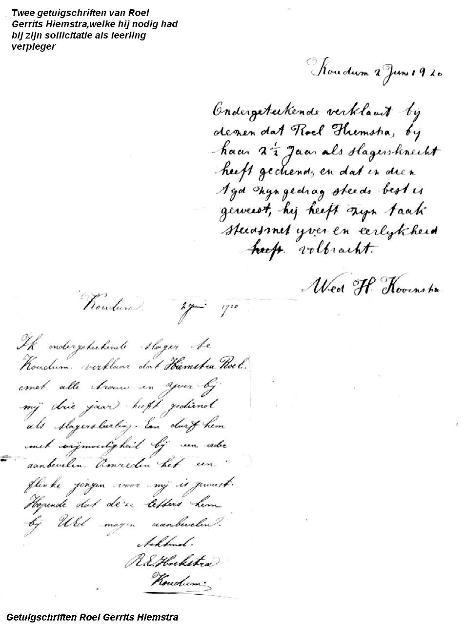 Twee getuigschriften van Roel
Gerrits Hiemstra,welke hij nodig had
bij zijn sollicitatie als leerling
verpleger
Koudum 2 Juni 1920
Ondergeteekende verklaart by
dezen dat Roel Hiemstra, by
haar 2 1/2 Jaar als slagersknecht
heeft gediend, en dat in dien
tyd zyn gedrag steeds best is
geweest, hij heeft zyn taak
steeds met yver en eerlykheid
heeft volbracht.
Wed H
Koudum 2 Juni 1920
Ik ondergeteekende slager te
Koudum verklaar dat Hiemstra Roel.
met alle trouw en yver bij
mij drie jaar heeft gediend
als slagersleerling. En durf hem
met vrijmoedigheid bij een ander
aanbevelen Omreden het een
flinke jongen voor mij is geweest.
Hopende dat deze letters hem
bij UEd mogen aanbevelen.
Achtend.
R.E. Hoekstra
Koudum.
Getuigschriften Roel Gerrits Hiemstra